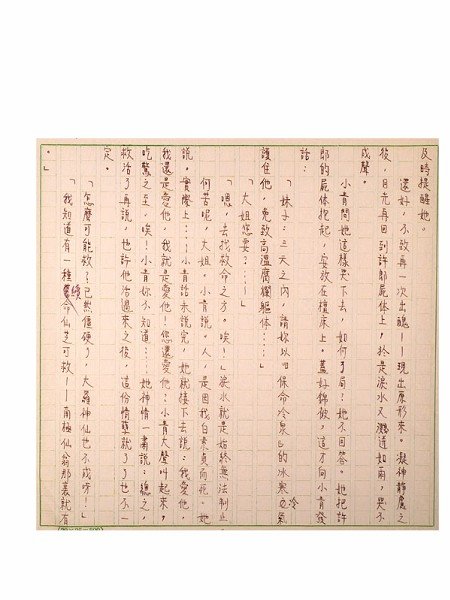 及時提醒她。
還好,不敢再一次出醜——現出原形來。凝神靜慮之
後,目光再回到許郎屍體上,於是淚水又迸如雨,哭不
成聲。
小青問她這樣哭下去,如何了局?她不回答。她把許
郎的屍體抱起,安放在檀床上,蓋好錦被,這才向小青發
話:
「妹子:三天之內,請妳以『保命冷泉』的冰寒冷氣
護住他,免致高溫腐爛軀體……」
「大姐您要?——」
「嗯,去找救命之方。唉!」淚水就是始終無法制止
何苦呢,大姐,小青說。人,是因我白素貞而死。她
說。實際上……小青話未說完,她就接下去說:我愛他,
我還是愛他,我就是愛他!您還愛他?小青大聲叫起來,
吃驚之至,唉!小青妳不知道……她神情一肅說:總之,
救活了再說,也許他活過來之後,這份情孽就了了也不一
定。
「怎麼可能救?已然僵硬了,大羅神仙也不成呀!」
「我知道有一種續命仙芝可救——南極仙翁那裏就有
。」